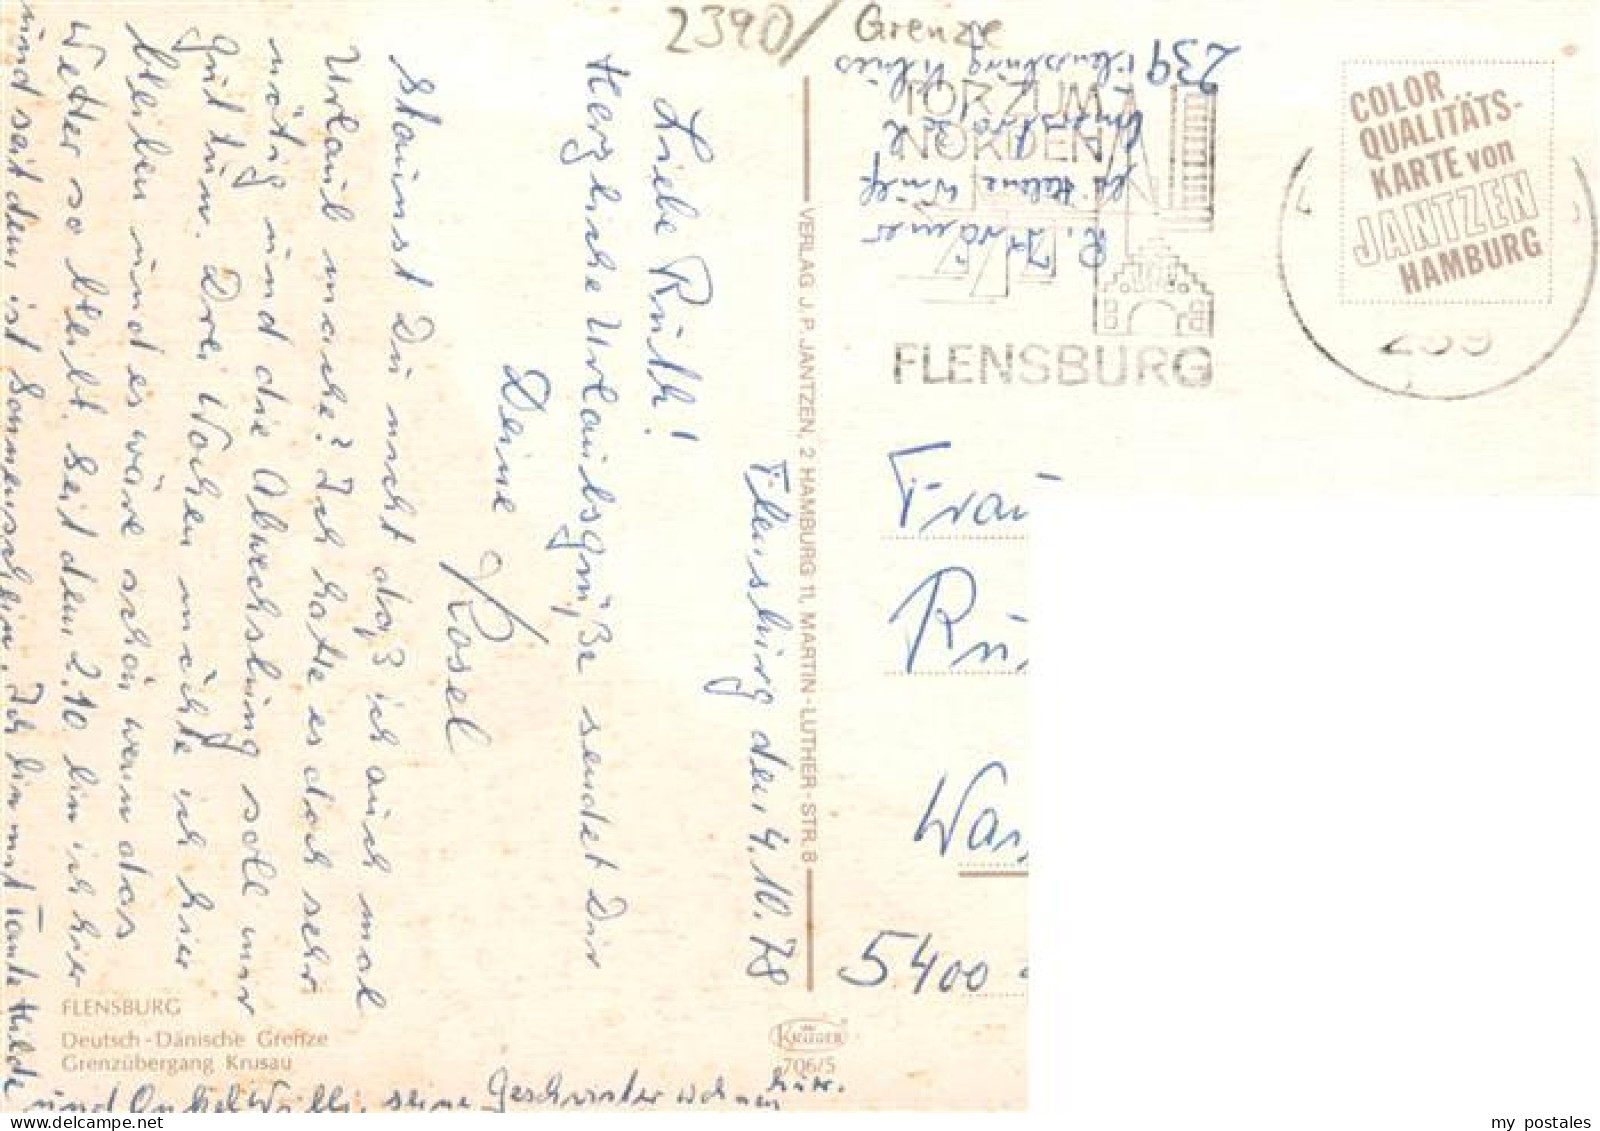 2390/ Grenze
Flensburg den 4.10.78
Liebe Ruth!
Herzliche Urlaubsgrüße sendet Dir
Deine Rosel
Staunst Du nicht daß ich auch mal
Urlaub mache? Ich hatte es doch sehr
nötig und die Abwechslung soll mir
gut tun. Drei Wochen möchte ich hier
bleiben und es wäre schön wenn das
Wetter so bleibt. Seit dem 2.10. bin ich hier
und seit dem ist Sonnenschein. Ich bin mit Tante Hilde
und Onkel Willi, seine Geschwister wohnen hier.
FLENSBURG
Deutsch-Dänische Grenze
Grenzübergang Krusau
VERLAG J. P. JANTZEN, 2 HAMBURG 11, MARTIN-LUTHER-STR. 8
KRÜGER
706/5
Helene Wulf
239 Flensburg
TOR ZUM
NORDEN
FLENSBURG
239
COLOR
QUALITÄTS-
KARTE von
JANTZEN
HAMBURG
Frau
5400
my postales